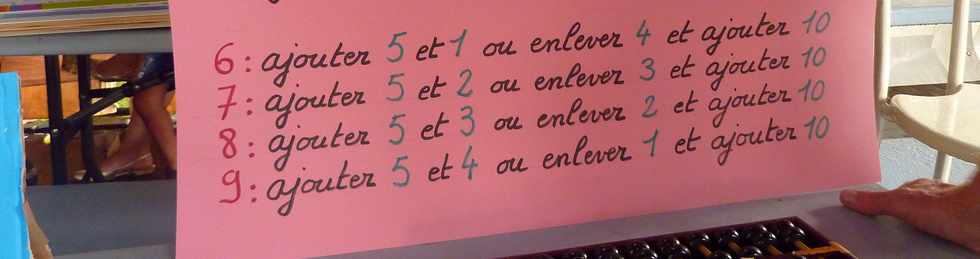 6 : ajouter 5 et 1 ou enlever 4 et ajouter 10
7 : ajouter 5 et 2 ou enlever 3 et ajouter 10
8 : ajouter 5 et 3 ou enlever 2 et ajouter 10
9 : ajouter 5 et 4 ou enlever 1 et ajouter 10